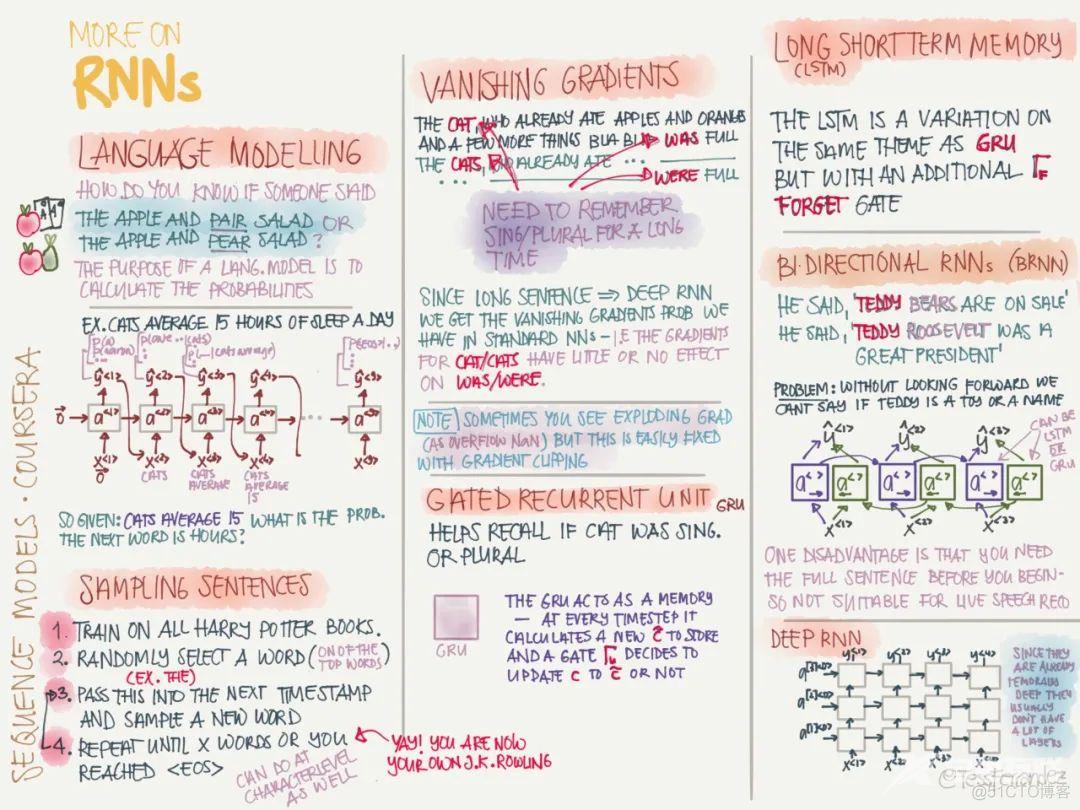 MORE ON
RNNs
SEQUENCE MODELS · COURSERA
LANGUAGE MODELLING
HOW DO YOU KNOW IF SOMEONE SAID
THE APPLE AND PAIR SALAD OR
THE APPLE AND PEAR SALAD?
THE PURPOSE OF A LANG. MODEL IS TO
CALCULATE THE PROBABILITIES
EX. CATS AVERAGE 15 HOURS OF SLEEP A DAY
ŷ<1> ŷ<2> ŷ<3> ŷ<4> ŷ<9>
a<1> a<2> a<3>
x<1> x<2> x<3> x<4> x<9>
CATS
CATS AVERAGE
CATS AVERAGE 15
SO GIVEN: CATS AVERAGE 15 WHAT IS THE PROB.
THE NEXT WORD IS HOURS?
SAMPLING SENTENCES
1. TRAIN ON ALL HARRY POTTER BOOKS.
2. RANDOMLY SELECT A WORD (ON OF THE TOP WORDS)
(EX. THE)
3. PASS THIS INTO THE NEXT TIMESTAMP
AND SAMPLE A NEW WORD
4. REPEAT UNTIL X WORDS OR YOU
REACHED <EOS>
CAN DO AT
CHARACTERLEVEL
AS WELL
YAY! YOU ARE NOW
YOUR OWN J.K. ROWLING
VANISHING GRADIENTS
THE CAT, WHO ALREADY ATE APPLES AND ORANGES
AND A FEW MORE THINGS BLA BLA WAS FULL
THE CATS, WHO ALREADY ATE ...
... WERE FULL
NEED TO REMEMBER
SING/PLURAL FOR A LONG
TIME
SINCE LONG SENTENCE ⇒ DEEP RNN
WE GET THE VANISHING GRADIENTS PROB WE
HAVE IN STANDARD NNs – I.E THE GRADIENTS
FOR CAT/CATS HAVE LITTLE OR NO EFFECT
ON WAS/WERE.
NOTE SOMETIMES YOU SEE EXPLODING GRAD
(AS OVERFLOW NaN) BUT THIS IS EASILY FIXED
WITH GRADIENT CLIPPING
GATED RECURRENT UNIT GRU
HELPS RECALL IF CAT WAS SING.
OR PLURAL
GRU
THE GRU ACTS AS A MEMORY
– AT EVERY TIMESTEP IT
CALCULATES A NEW c̃ TO STORE
AND A GATE Γu DECIDES TO
UPDATE c TO c̃ OR NOT
LONG SHORT TERM MEMORY
(LSTM)
THE LSTM IS A VARIATION ON
THE SAME THEME AS GRU
BUT WITH AN ADDITIONAL ΓF
FORGET GATE
BI-DIRECTIONAL RNNs (BRNN)
HE SAID, 'TEDDY BEARS ARE ON SALE'
HE SAID, 'TEDDY ROOSEVELT WAS A
GREAT PRESIDENT'
PROBLEM: WITHOUT LOOKING FORWARD WE
CANT SAY IF TEDDY IS A TOY OR A NAME
CAN BE
LSTM
OR
GRU
ŷ<1> ŷ<2> ŷ<3>
x<1> x<2> x<3>
ONE DISADVANTAGE IS THAT YOU NEED
THE FULL SENTENCE BEFORE YOU BEGIN-
SO NOT SUITABLE FOR LIVE SPEECH RECO
DEEP RNN
y<1> y<2> y<3> y<4>
a[3]<0>
a[2]<0>
a[1]<0>
x<1> x<2> x<3> x<4>
SINCE THEY
ARE ALREADY
TEMPORALLY
DEEP THEY
USUALLY
DON'T HAVE
A LOT OF
LAYERS
@TessFerrandez
@51CTO博客